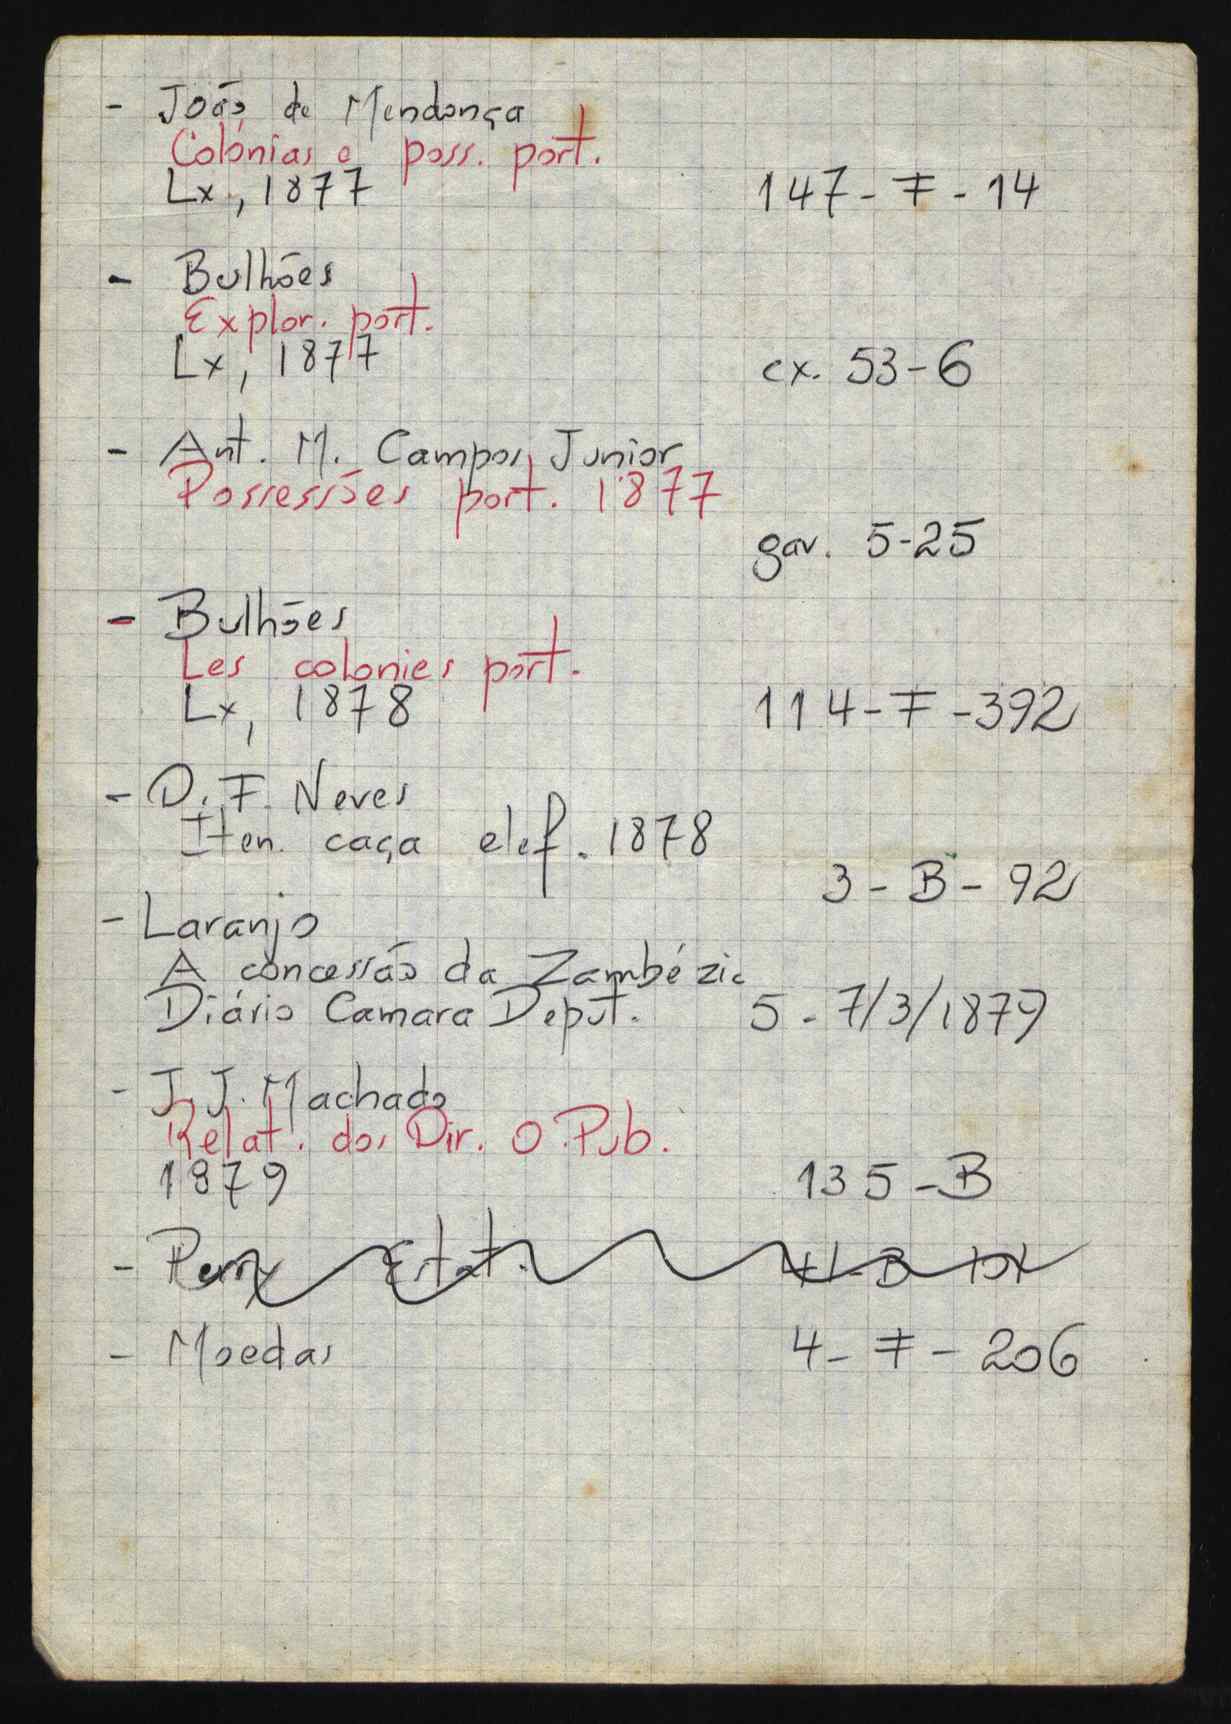 - João de Mendonça
Colónias e poss. port.
Lx, 1877 147-F-14
- Bulhões
Explor. port.
Lx, 1877 cx. 53-6
- Ant. M. Campos Junior
Possessões port. 1877
gav. 5-25
- Bulhões
Les colonies port.
Lx, 1878 114-F-392
- D. F. Neves
Iten. caça elef. 1878
3-B-92
- Laranjo
A concessão da Zambézia
Diário Camara Deput. 5-7/3/1879
- J. J. Machado
Relat. dos Dir. O. Pub.
1879 135-B
- Perry Estat.
- Moedas 4-F-206